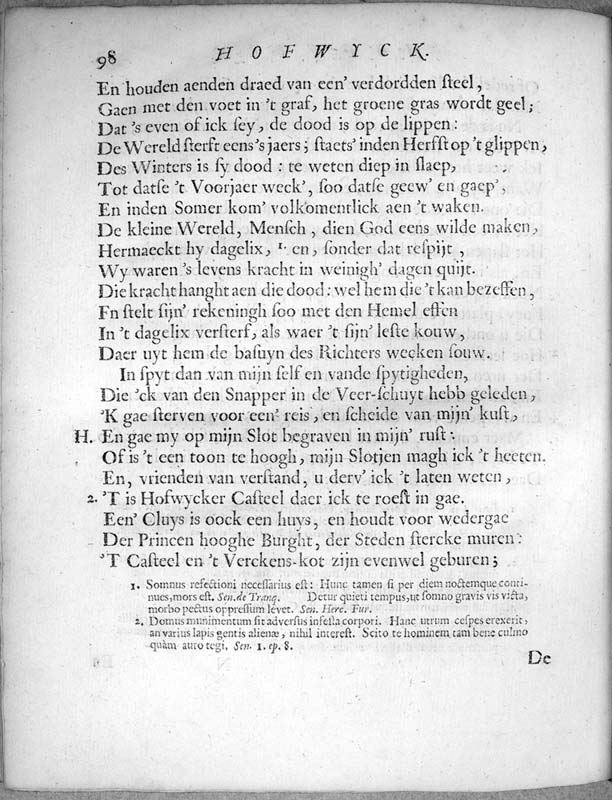 98 HOFWYCK.
En houden aenden draed van een' verdordden steel,
Gaen met den voet in 't graf, het groene gras wordt geel;
Dat 's even of ick sey, de dood is op de lippen:
De Wereld sterft eens 's jaers; staets' inden Herfst op 't glippen,
Des Winters is sy dood: te weten diep in slaep,
Tot datse 't Voorjaer weck', soo datse geew' en gaep',
En inden Somer kom' volkomentlick aen 't waken.
De kleine Wereld, Mensch, dien God eens wilde maken,
Hermaeckt hy dagelix, 1. en, sonder dat respijt,
Wy waren 's levens kracht in weinigh' dagen quijt.
Die kracht hanght aen die dood: wel hem die 't kan bezeffen,
En stelt sijn' rekeningh soo met den Hemel effen
In 't dagelix versterf, als waer 't sijn' leste kouw,
Daer uyt hem de basuyn des Richters wecken souw.
In spyt dan van mijn self en vande spytigheden,
Die 'ck van den Snapper in de Veer-schuyt hebb geleden,
'K gae sterven voor een' reis, en scheide van mijn' kust,
H. En gae my op mijn Slot begraven in mijn' rust:
Of is 't een toon te hoogh, mijn Slotjen magh ick 't heeten.
En, vrienden van verstand, u derv' ick 't laten weten,
2. 'T is Hofwycker Casteel daer ick te roest in gae.
Een' Cluys is oock een huys, en houdt voor wedergae
Der Princen hooghe Burght, der Steden stercke muren:
'T Casteel en 't Verckens-kot zijn evenwel geburen;
1. Somnus refectioni necessarius est: Hunc tamen si per diem noctemque conti-
nues, mors est. Sen. de Tranq. Detur quieti tempus, ut somno gravis vis victa,
morbo pectus oppressum levet. Sen. Herc. Fur.
2. Domus munimentum sit adversus infesta corpori. Hanc utrum cespes erexerit,
an varius lapis gentis alienæ, nihil interest. Scito te hominem tam bene culmo
quàm auro tegi. Sen. 1. ep. 8.
De